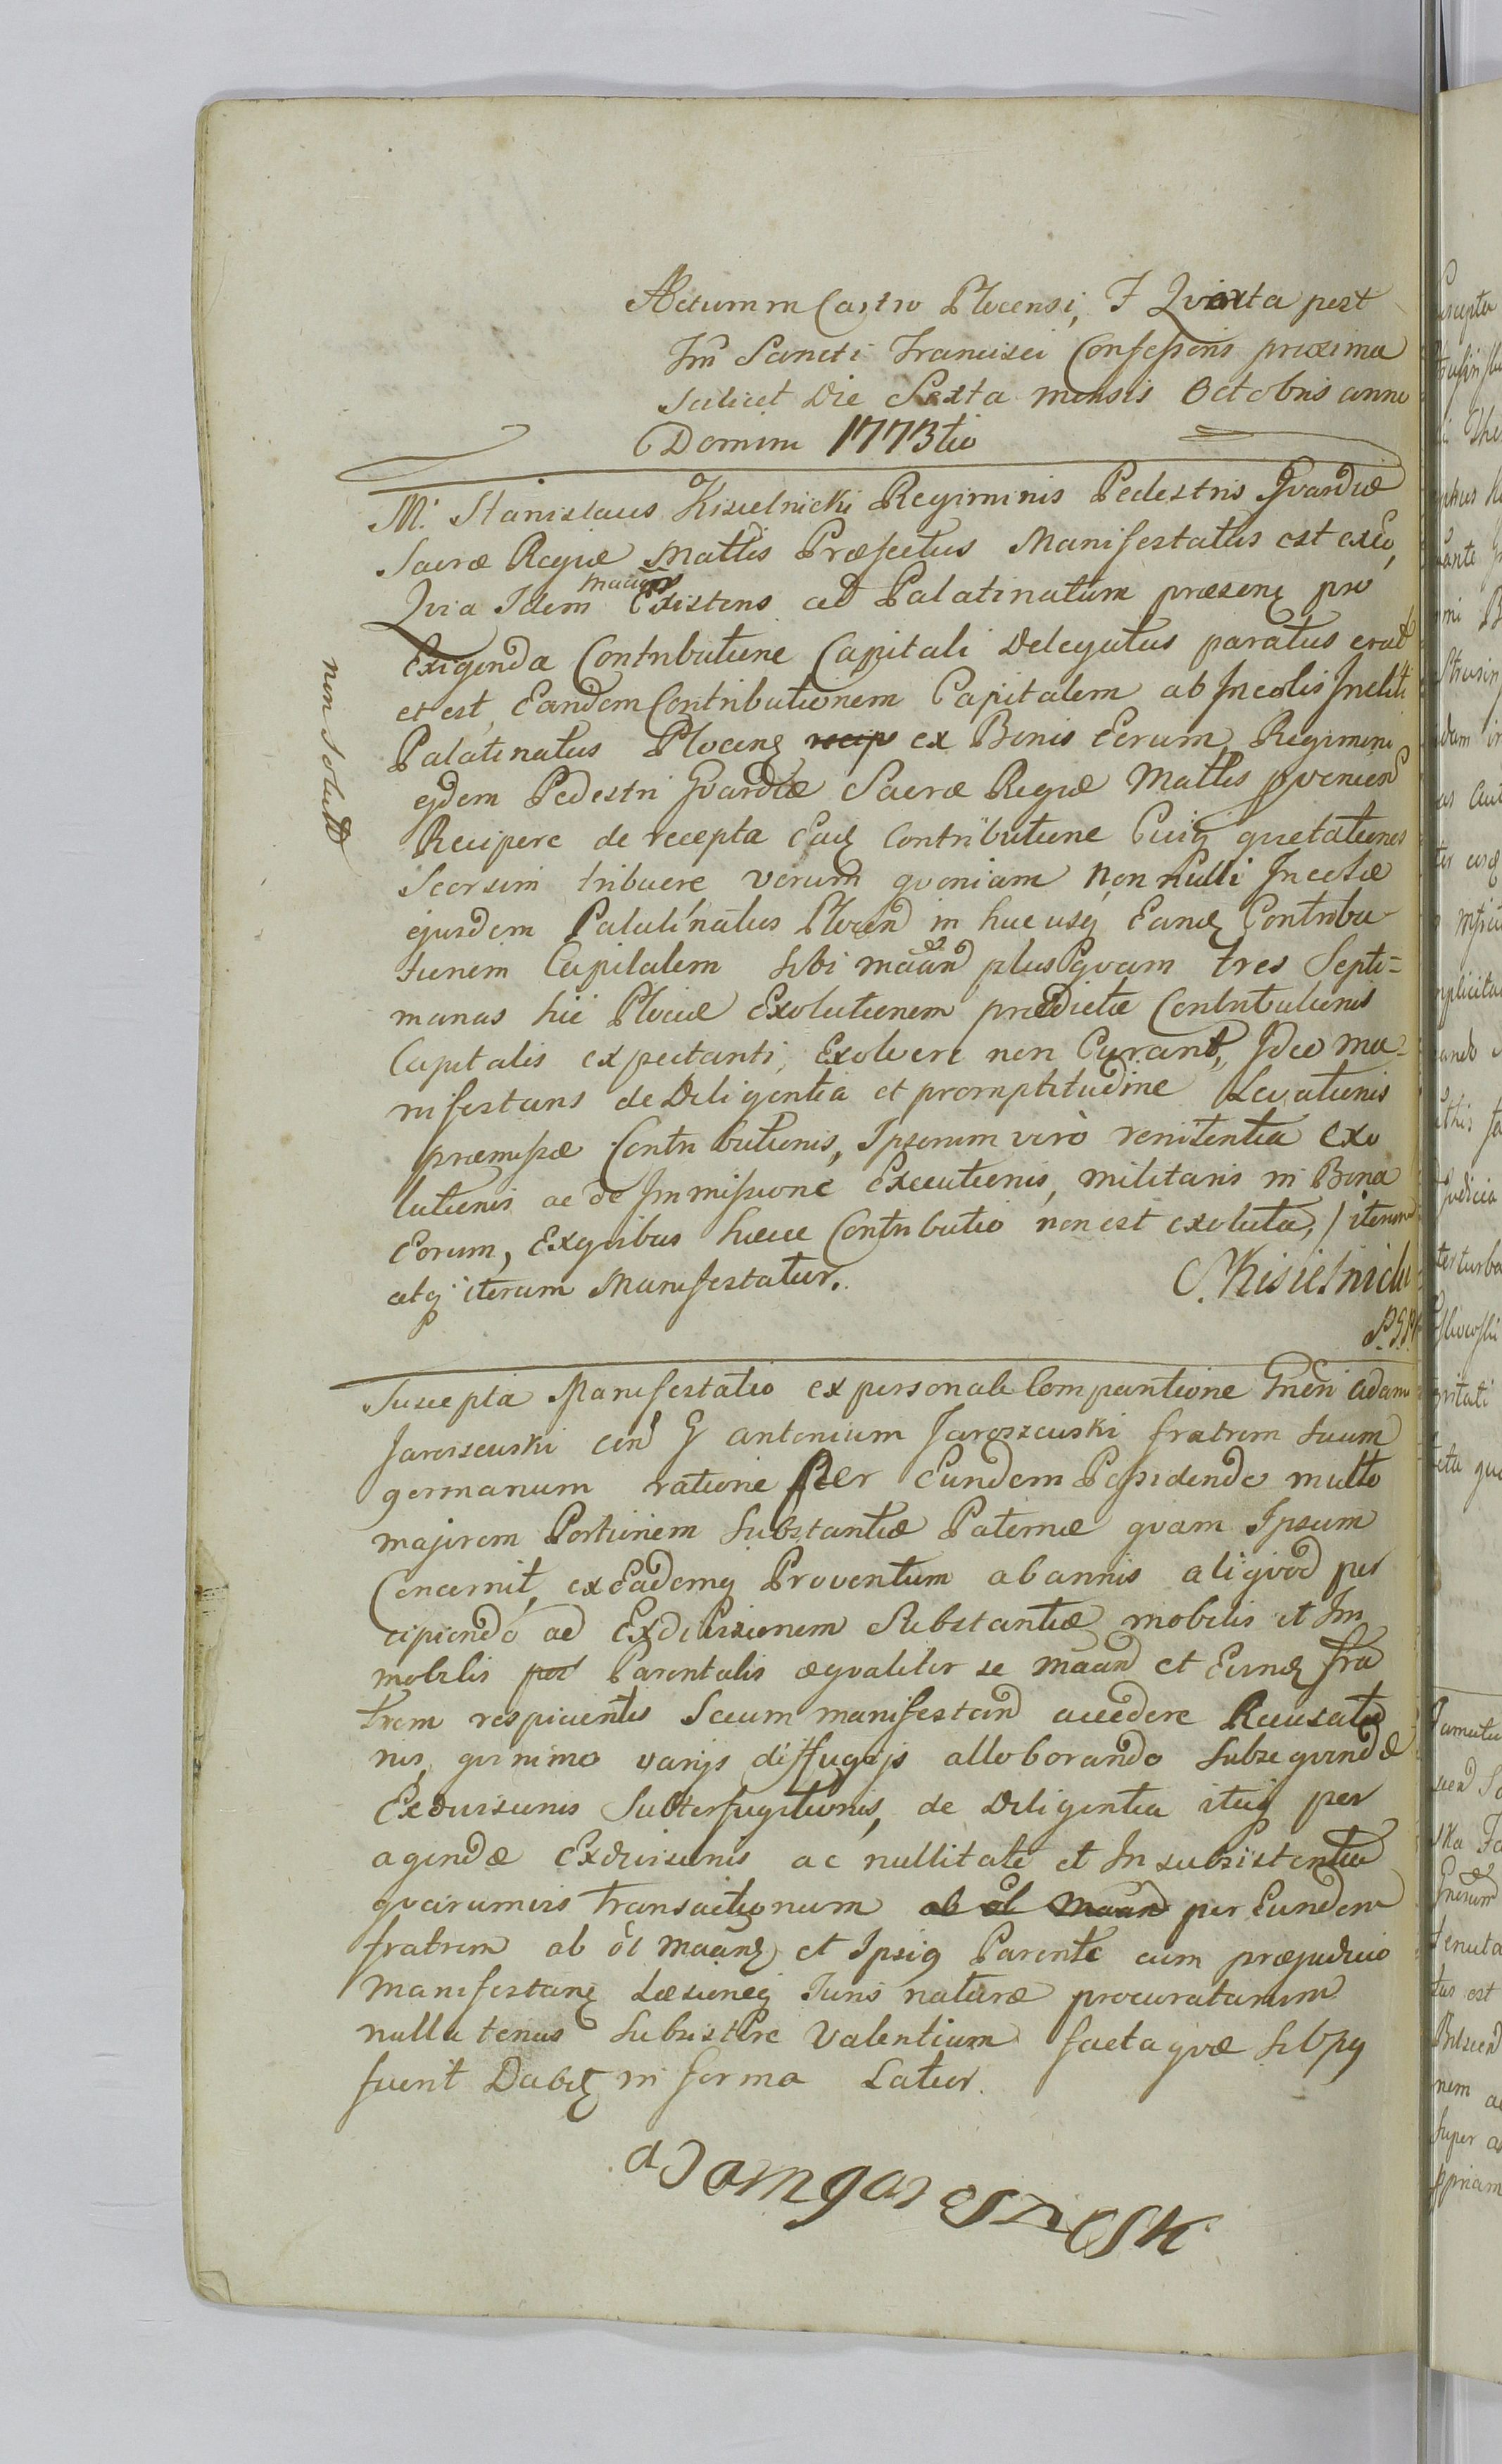 Actum in Castro Plocensi, F Qvarta post
Fm̃ Sancti Francisci Confessoris proxima
Scilicet Die Sexta mensis Octobris anno
Domini 1773tio
M. Stanislaus Kisielnicki Regiminis Pedestris Gvardiæ
Sacræ Regiæ Mattis Præfectus Manifestatus est exeo,
Qvia Idem Existens ad Palatinatum præsens pro
Exigenda Contributione Capitali Delegatus paratus erat
et est Eandem Contributionem Capitalem ab Incolis Incliti
Palatinatus Plocens recip ex Bonis Eorum Regimini
ejdem Pedestri Gvardiæ Sacræ Regiæ Mattis pvenien
Recipere de recepta Eadq Contributione Cuiq quietationes
Seorsim tribuere verum qvoniam non nulli Incolæ
ejusdem Palatinatus Plocen in hucusq Eand Contribu-
tionem Capitalem sibi maan plus qvam tres Septi=
manas hic Plociæ Exolutionem prædictæ Contributionis
Capitalis expectanti, Exolvere non Curant, Ideo ma-
nifestans de Diligentia et promptitudine Levationis
præmissæ Contributionis, Ipsorum verò renitentia exo
lutionis ac de Immissione Executionis, militaris in Bona
Eorum, Exqvibus hucce Contributio non est exoluta, iterum
atq iterum Manifestatur.
S. Kisielnicki
non solut
Suscepta Manifestatio ex personali Comparitione Gnẽri Adam
Jaroszewski con G antonium Jaroszewski fratrem suum
germanum ratione per Eundem Possidendo multo
majorem Portionem Substantiæ Paternæ qvam Ipsum
Concernit, exEademq Proventum ab annis aliqvod per
cipiendo ad Exdivisionem Substantiæ mobilis et Im
mobilis por Parentalis æqvaliter se maan et Eund fra
trem respicientis Secum manifestan accedere Recusatio
nis, qvinimo varijs diffugijs alloborando Subseqvendæ
Exdivisionis Subterfugitionis, de Diligentia itaq per
agendæ Exdivisionis ac nullitate et Insubsistentia
qvarumvis Transactionum ab ol maan per Eundem
fratrem ab ol maan et Ipsiq Parente cum præjudicio
Manifestan Læsioneq Juris naturæ procuratarum
nullatenus Subsistere Valentium facta qvæ
fuerit Dabit in forma Latior.
adam Jaroszesk